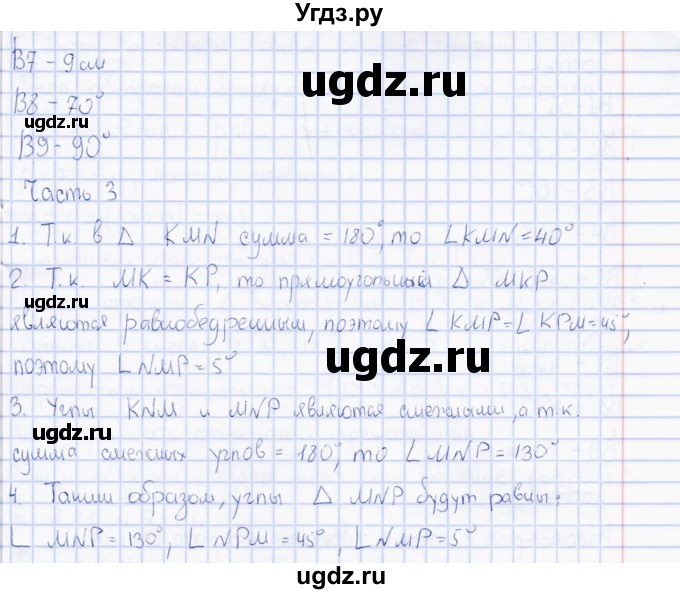 Угдз.ру
B7 - 9 см
ugdz.ru
B8 - 70°
ugdz.ru
B9 - 90°
Часть 3
1. Т.к. в Δ KMN сумма = 180°, то ∠KMN = 40°
2. Т.к. MK = KP, то прямоугольный Δ MKP
ugdz.ru
являются равнобедренным, поэтому ∠ KMP = ∠ KPM = 45°,
ugdz.ru
поэтому ∠ NMP = 5°
3. Углы KNM и MNP являются смежными, а т.к.
ugdz.ru
сумма смежных углов = 180°, то ∠ MNP = 130°
4. Таким образом, углы Δ MNP будут равны:
ugdz.ru
∠ MNP = 130°, ∠ NPM = 45°, ∠ NMP = 5°
ugdz.ru